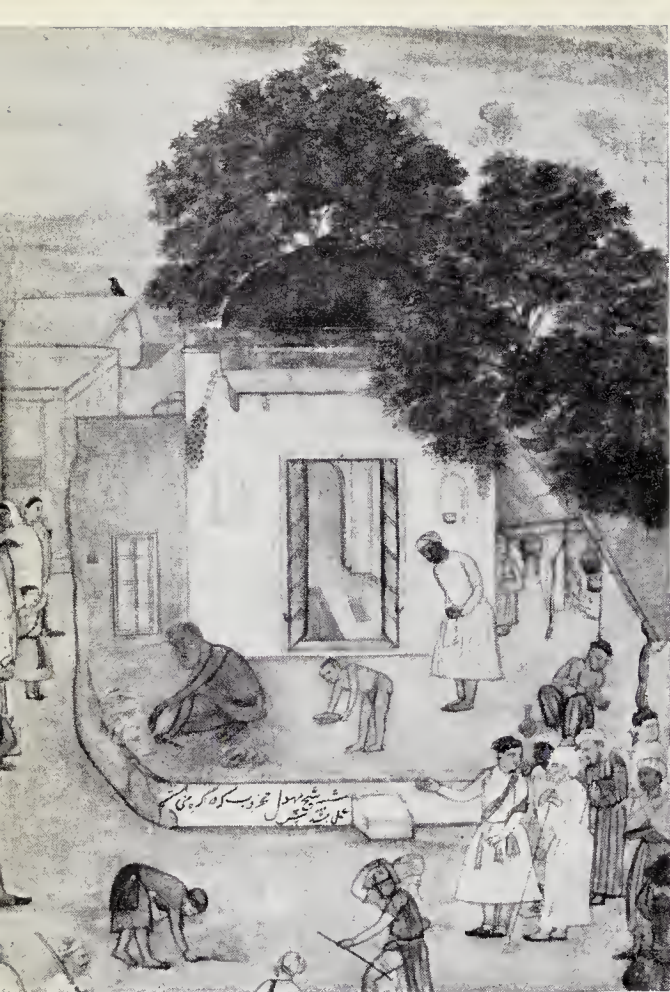 شبیه شیخ پهول مجذوب که در اگره
عمل بشنداس